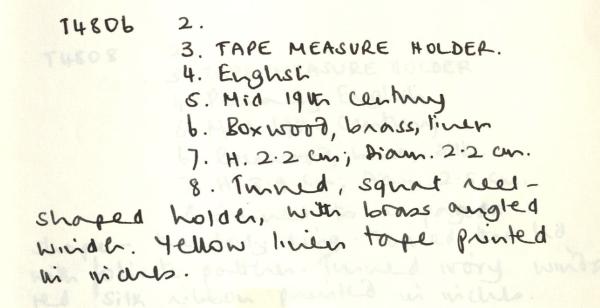 T4806 2.
3. TAPE MEASURE HOLDER.
4. English
5. Mid 19th century
6. Boxwood, brass, linen
7. H. 2.2 cm; Diam. 2.2 cm.
8. Turned, squat reel-
shaped holder, with brass angled
winder. Yellow linen tape printed
in inches.